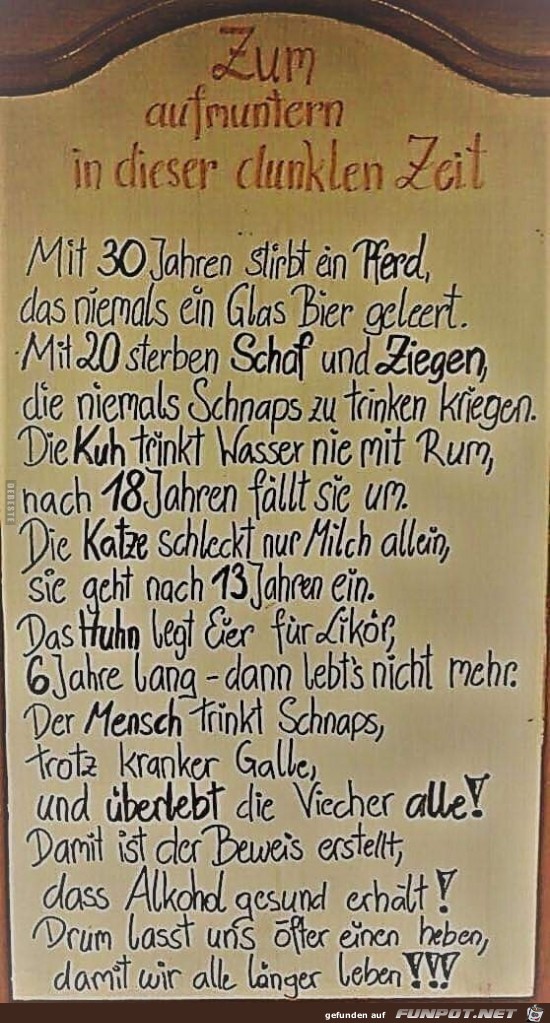 Zum
aufmuntern
in dieser dunklen Zeit
Mit 30 Jahren stirbt ein Pferd,
das niemals ein Glas Bier geleert.
Mit 20 sterben Schaf und Ziegen,
die niemals Schnaps zu trinken kriegen.
Die Kuh trinkt Wasser nie mit Rum,
nach 18 Jahren fällt sie um.
Die Katze schleckt nur Milch allein,
sie geht nach 13 Jahren ein.
Das Huhn legt Eier für Likör,
6 Jahre lang - dann lebt's nicht mehr.
Der Mensch trinkt Schnaps,
trotz kranker Galle,
und überlebt die Viecher alle!
Damit ist der Beweis erstellt,
dass Alkohol gesund erhält!
Drum lasst uns öfter einen heben,
damit wir alle länger leben!!!
DEBESTE
gefunden auf FUNPOT.NET